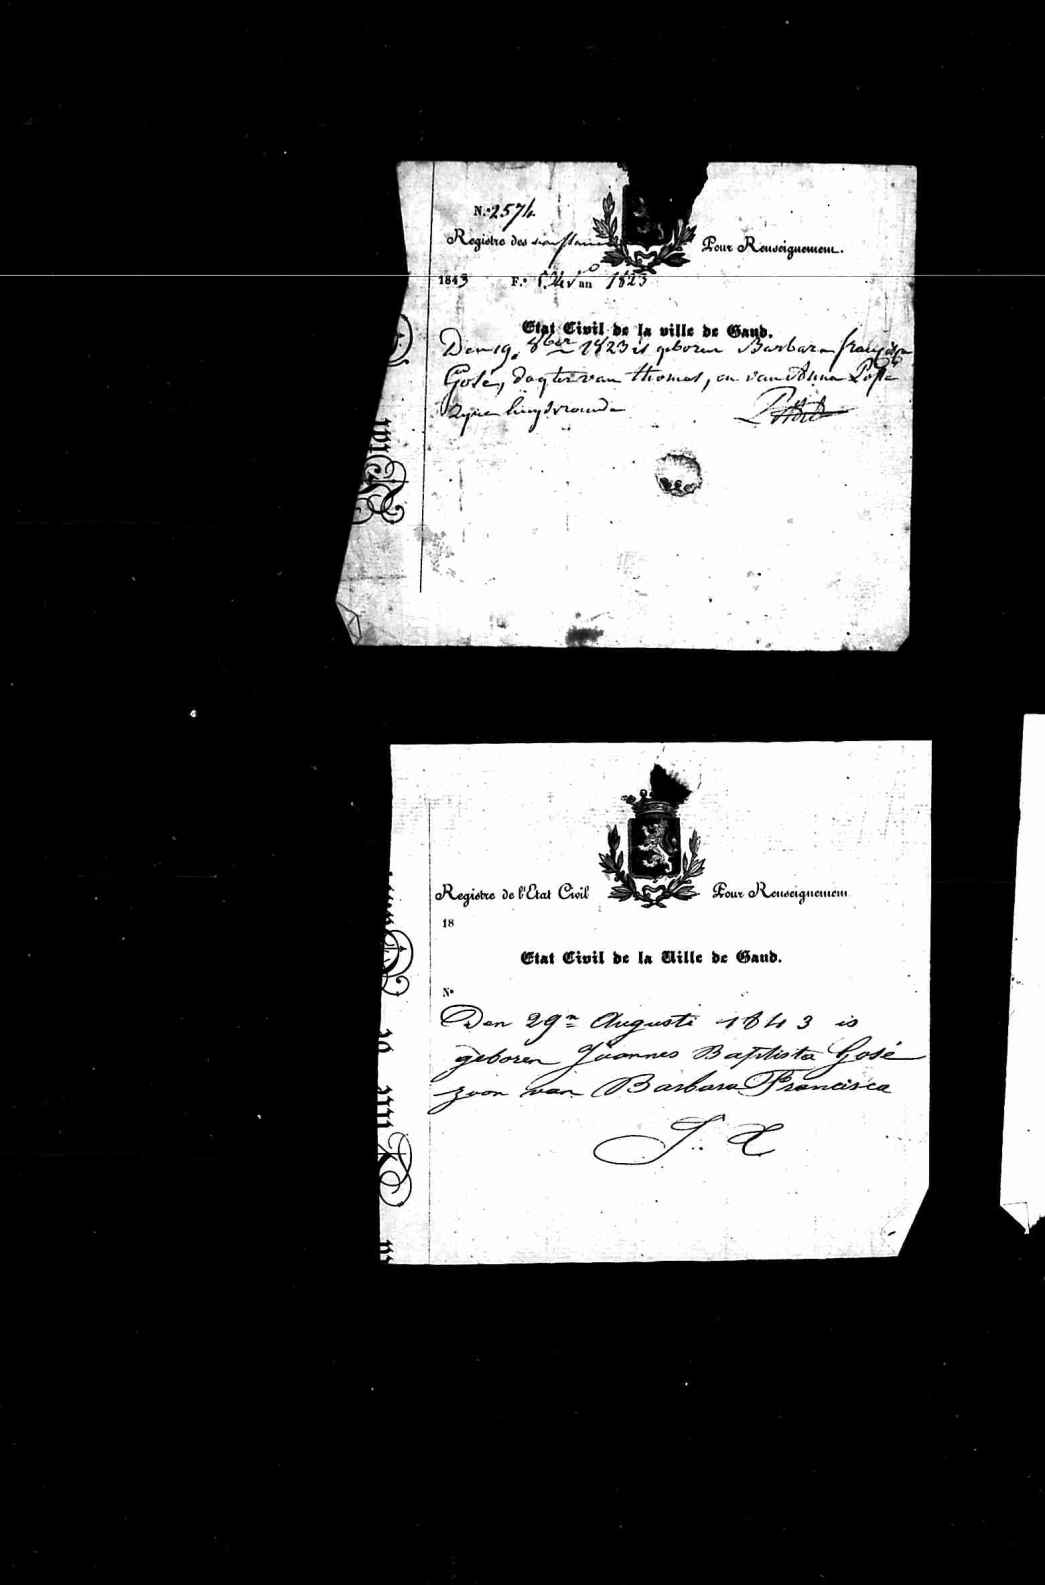 N.º 2574.
Registre des naissances
Pour Renseignement.
1843 F.º an 1823
Etat Civil de la ville de Gand.
Den 19. 8ber 1823 is geboren Barbara francisca
Gose, dogter van thomas, en van Anna
zyne huysvrouwe
Registre de l'Etat Civil
Pour Renseignement
18
Etat Civil de la Ville de Gand.
Nº
Den 29n Augusti 1843 is
geboren Joannes Baptista Gosé
zoon van Barbara Francisca